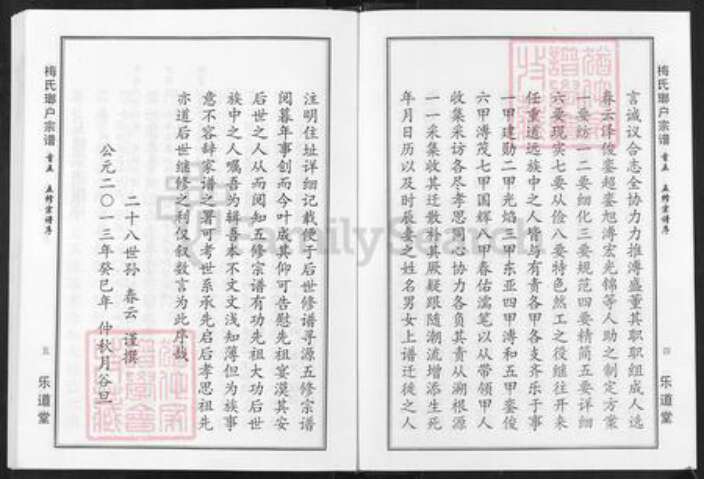 梅氏瑯户宗谱 首五 五修宗谱序
四
乐道堂
言诚议合志全协力力推溥盛董其职职组成人选
春云泽俊銮超銮旭溥宏光锦等人助之制定方案
一要纺一二要细化三要规范四要精简五要详细
六要现实七要从俭八要特色然工之役继往开来
任重道远族中之人皆与有责各甲各支齐乐于事
一甲建勋二甲光焰三甲东亚四甲溥和五甲銮俊
六甲溥茂七甲国辉八甲春佑濡笔以从带领甲人
收集采访各尽孝思同心协力各负其责从溯根源
一一采集收其迁散补其厥疑跟随潮流增添生死
年月日历以及时辰妻之姓名男女上谱迁徙之人
注明住址详细记载便于后世修谱寻源五修宗谱
阅暮年事创而今叶成其仰可告慰先祖窀漠其安
后世之人从而阅知五修宗谱有功先祖大功后世
族中之人嘱吾为辑吾本不文文浅知薄但为族事
意不容辞家谱之署可考世系承先启后孝思祖先
亦道后世继修之利仅叙数言为此序哉
二十八世孙 春云 谨撰
公元二〇一三年癸巳年 仲秋月谷旦
梅氏瑯户宗谱 首五 五修宗谱序
五
乐道堂
FamilySearch